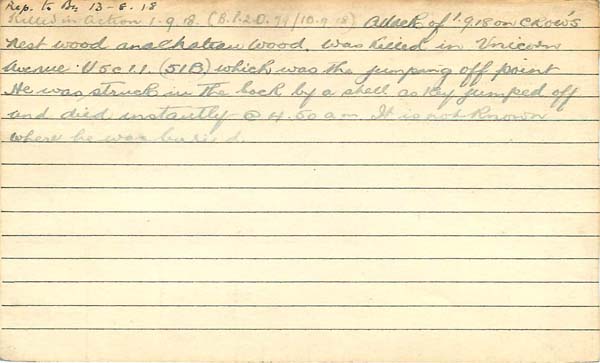 Rep. to Bn 13-8.18
Killed in Action 1-9.18. (B.120. 79/10.9.18) Attack of 1.9.18 on CROW'S
nest wood and chateau wood. was killed in Unicorn
Avenue U5c 1.1. (51B) which was the jumping off point
He was struck in the back by a shell as they jumped off
and died instantly @ 4.50 am. It is not known
where he was buried.